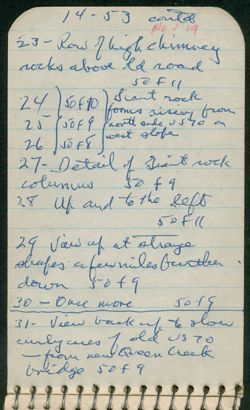 14-53 contd
No. 5 19
23- Row of high chimney
rocks above old road
50 f 11
24 50 f 10 Giant rock
25 50 f 9 forms rising from
north side US 70 on
26 50 f 8 west slope
27- Detail of Giant rock
columns 50 f 9
28 Up and to the left
50 f 11
29 View up at strange
shapes a few miles farther
down 50 f 9
30- Once more 50 f 9
31- View back up to show
curlycues of old US 70
- from new Queen Creek
bridge 50 f 9